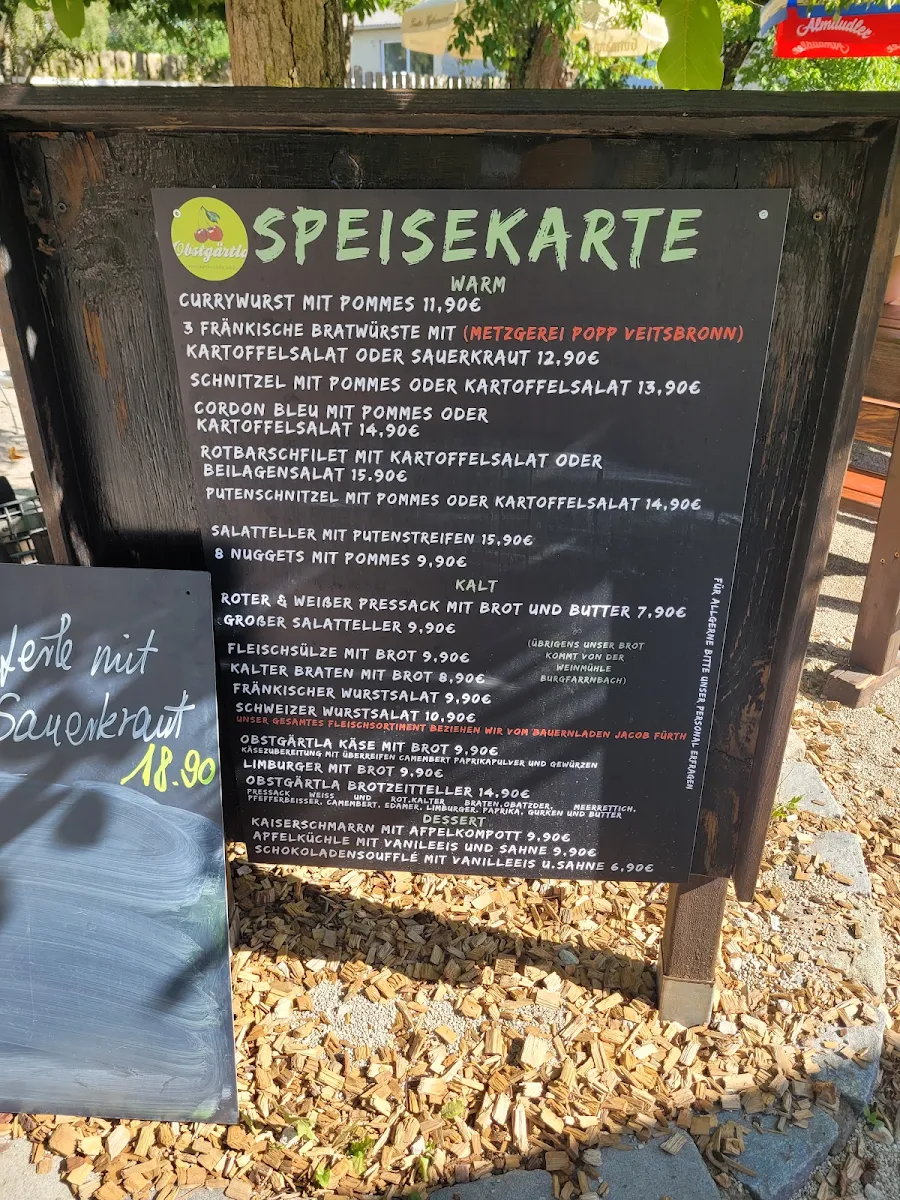 Almdudler
Obstgärtla
SPEISEKARTE
WARM
CURRYWURST MIT POMMES 11,90€
3 FRÄNKISCHE BRATWÜRSTE MIT (METZGEREI POPP VEITSBRONN)
KARTOFFELSALAT ODER SAUERKRAUT 12,90€
SCHNITZEL MIT POMMES ODER KARTOFFELSALAT 13,90€
CORDON BLEU MIT POMMES ODER
KARTOFFELSALAT 14,90€
ROTBARSCHFILET MIT KARTOFFELSALAT ODER
BEILAGENSALAT 15.90€
PUTENSCHNITZEL MIT POMMES ODER KARTOFFELSALAT 14,90€
SALATTELLER MIT PUTENSTREIFEN 15,90€
8 NUGGETS MIT POMMES 9,90€
KALT
ROTER & WEIßER PRESSACK MIT BROT UND BUTTER 7,90€
GROßER SALATTELLER 9,90€
FLEISCHSÜLZE MIT BROT 9,90€
KALTER BRATEN MIT BROT 8,90€
FRÄNKISCHER WURSTSALAT 9,90€
SCHWEIZER WURSTSALAT 10,90€
(ÜBRIGENS UNSER BROT
KOMMT VON DER
WEINMÜHLE
BURGFARRNBACH)
UNSER GESAMTES FLEISCHSORTIMENT BEZIEHEN WIR VOM BAUERNLADEN JACOB FÜRTH
OBSTGÄRTLA KÄSE MIT BROT 9,90€
KÄSEZUBEREITUNG MIT ÜBERREIFEN CAMEMBERT PAPRIKAPULVER UND GEWÜRZEN
LIMBURGER MIT BROT 9,90€
OBSTGÄRTLA BROTZEITTELLER 14,90€
PRESSACK WEISS UND ROT,KALTER BRATEN,OBATZDER, MEERRETTICH,
PFEFFERBEISSER, CAMEMBERT, EDAMER, LIMBURGER, PAPRIKA, GURKEN UND BUTTER
DESSERT
KAISERSCHMARRN MIT AFPELKOMPOTT 9,90€
APFELKÜCHLE MIT VANILEEIS UND SAHNE 9,90€
SCHOKOLADENSOUFFLÉ MIT VANILLEEIS U.SAHNE 6,90€
FÜR ALLGERNE BITTE UNSER PERSONAL ERFRAGEN
mit
Sauerkraut
18.90